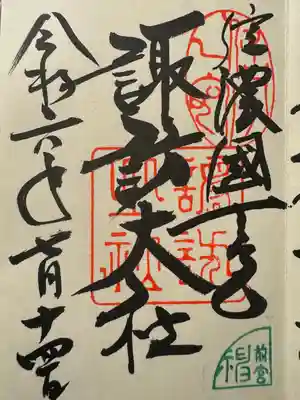 信濃國一之宮
諏訪大社
令和六年七月十四日
諏訪大社
前宮